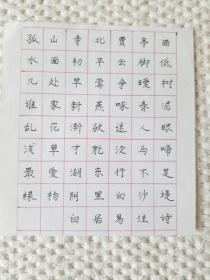 孤山寺北贾亭西
水面初平云脚低
几处早莺争暖树
谁家新燕啄春泥
乱花渐欲迷人眼
浅草才能没马蹄
最爱湖东行不足
绿杨阴里白沙堤
白居易佳诗